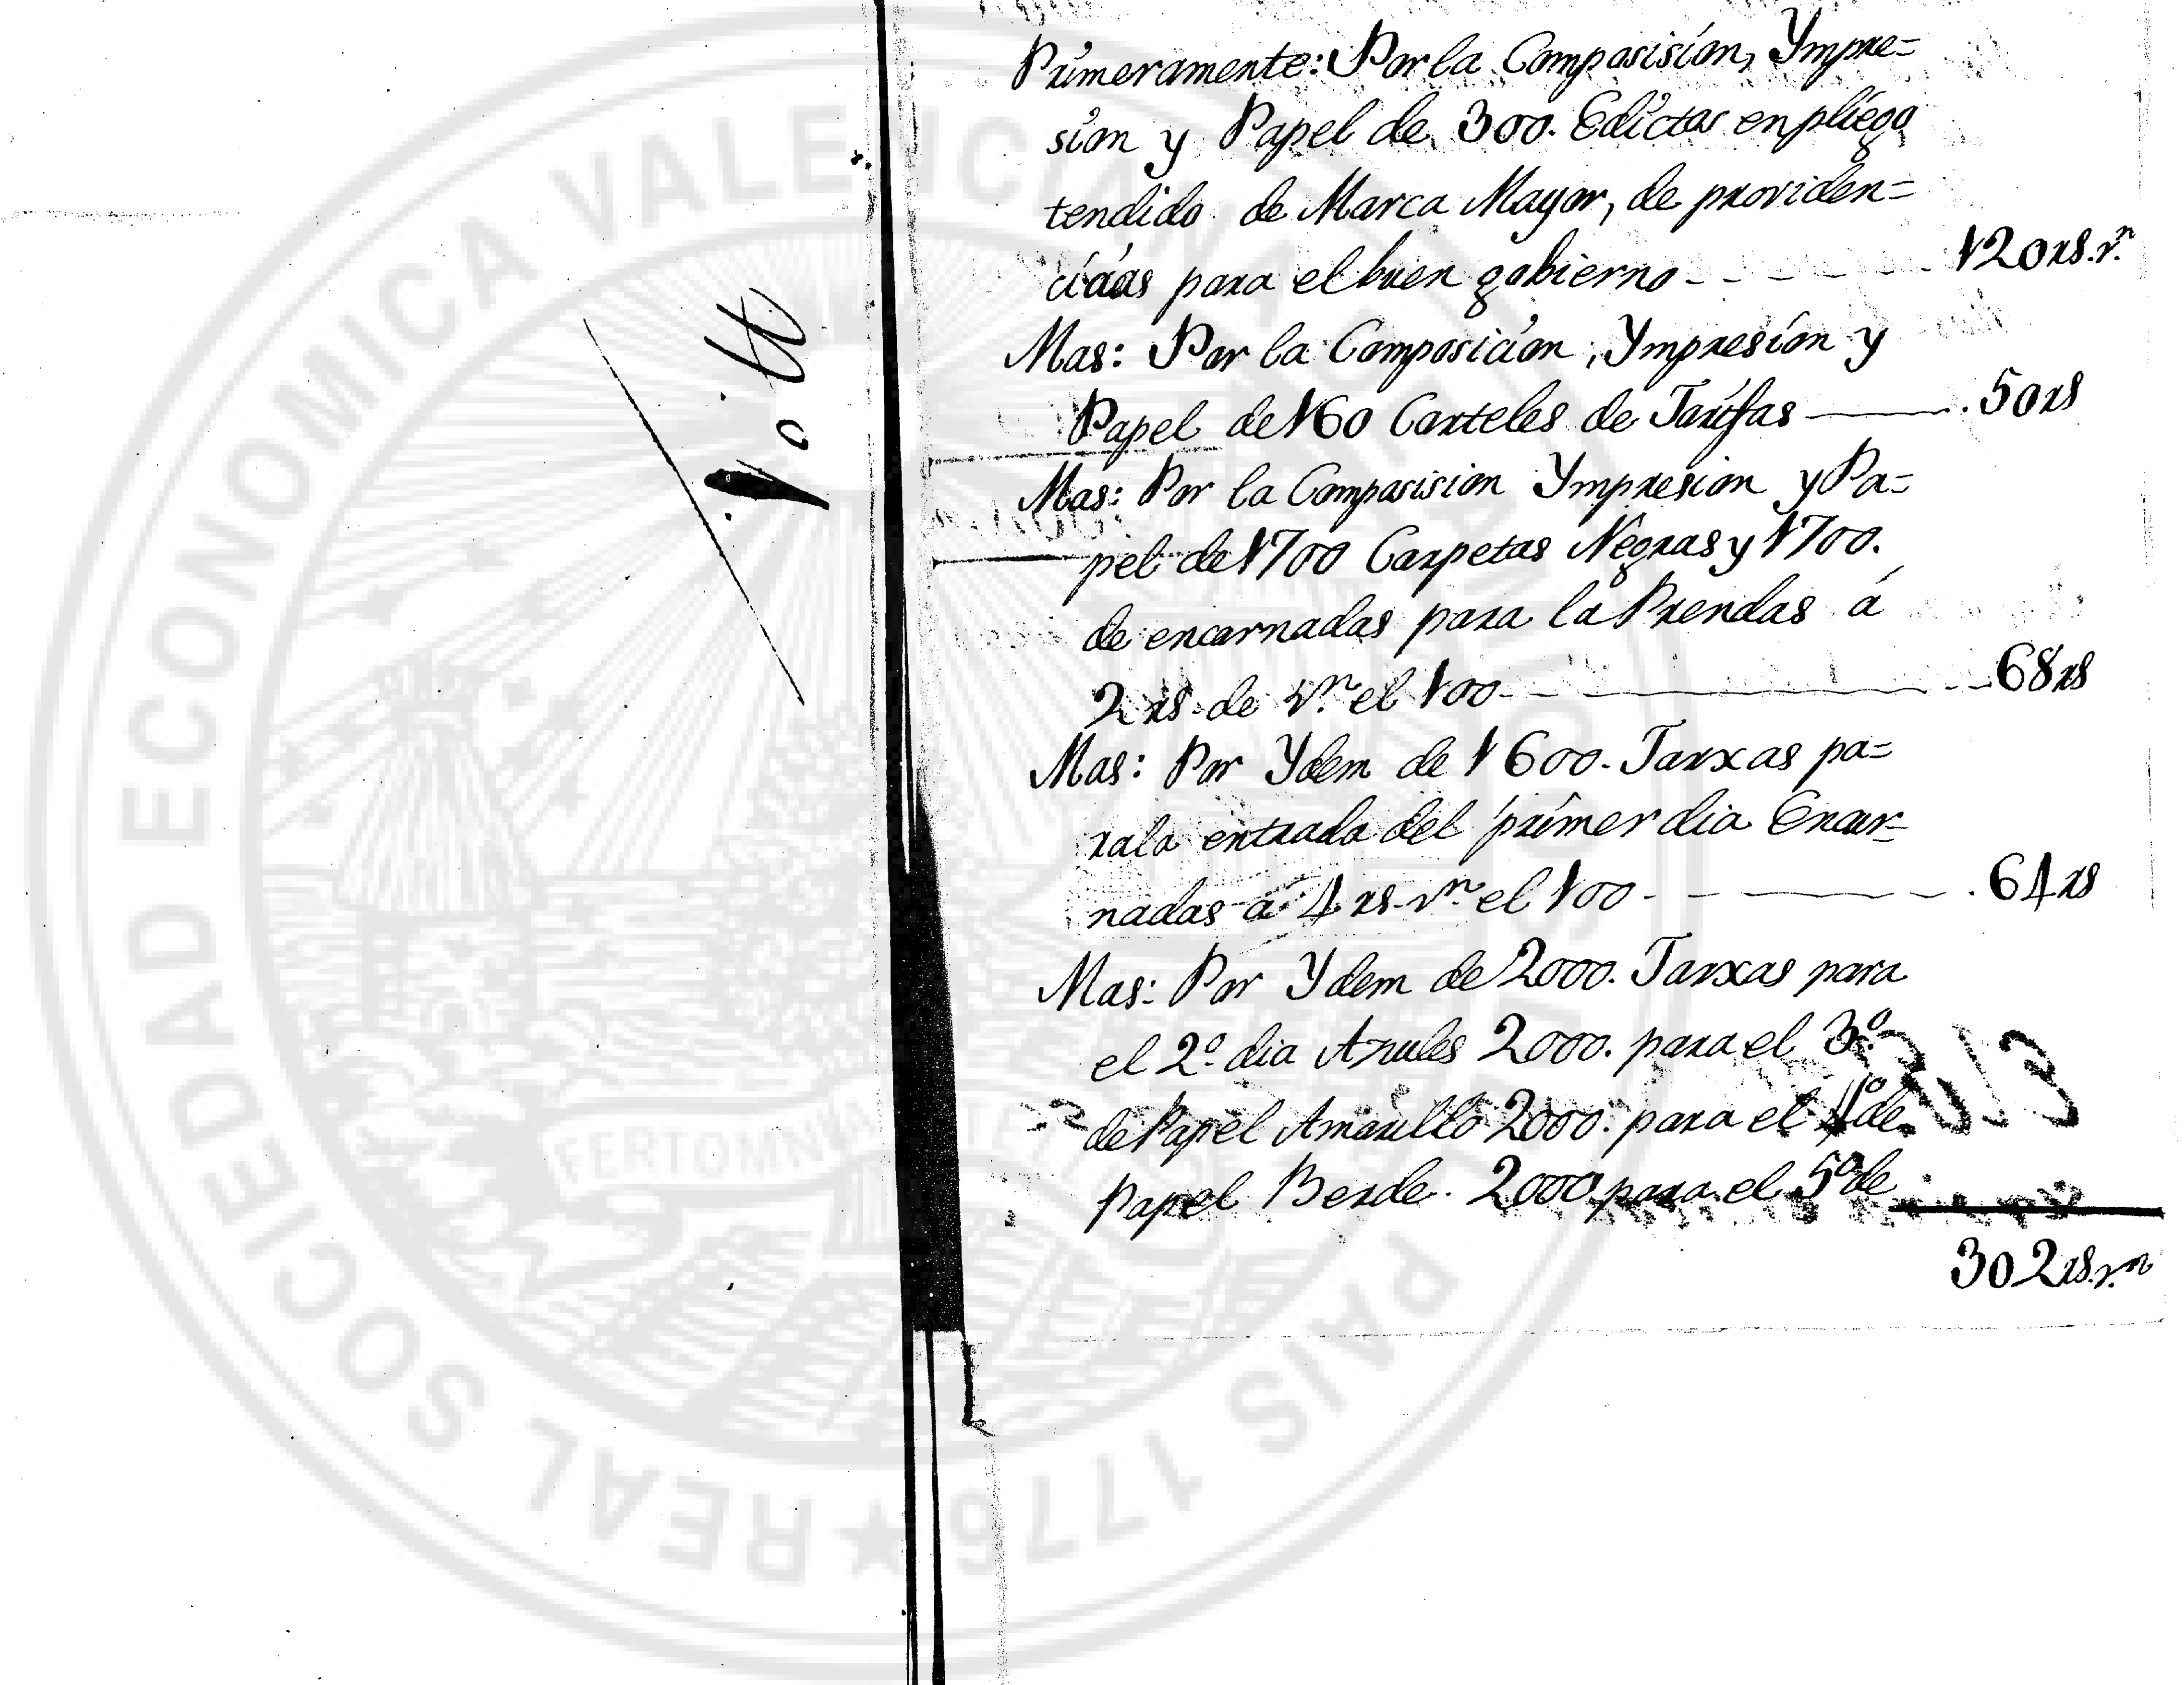 Primeramente: Por la Composision, Ympre=
sion y Papel de 300. Edictos en pliego
tendido de Marca Mayor, de providen=
cias para el buen gobierno - - - - - 120 rs. vn
Mas: Por la Composicion, Ympresion y
Papel de 160 Carteles de Tarifas ——— 50 rs
Mas: Por la Composision Ympresion y Pa=
pel de 1700 Carpetas Negras y 1700.
de encarnadas para la Prendas á
2 rs de vn. el 100 - - ——— - 68 rs
Mas: Por Ydem de 1600. Tarxas pa=
rala entrada del primer dia Encar=
nadas á 4 rs. vn. el 100 - - ——— 64 rs
Mas: Por Ydem de 2000. Tarxas para
el 2º dia Azules 2000. para el 3º
de Papel Amarillo 2000. para el 4º de
Papel Berde. 2000 para el 5º de
302 rs. vn
REAL SOCIEDAD ECONOMICA VALENCIANA
PAIS 1776